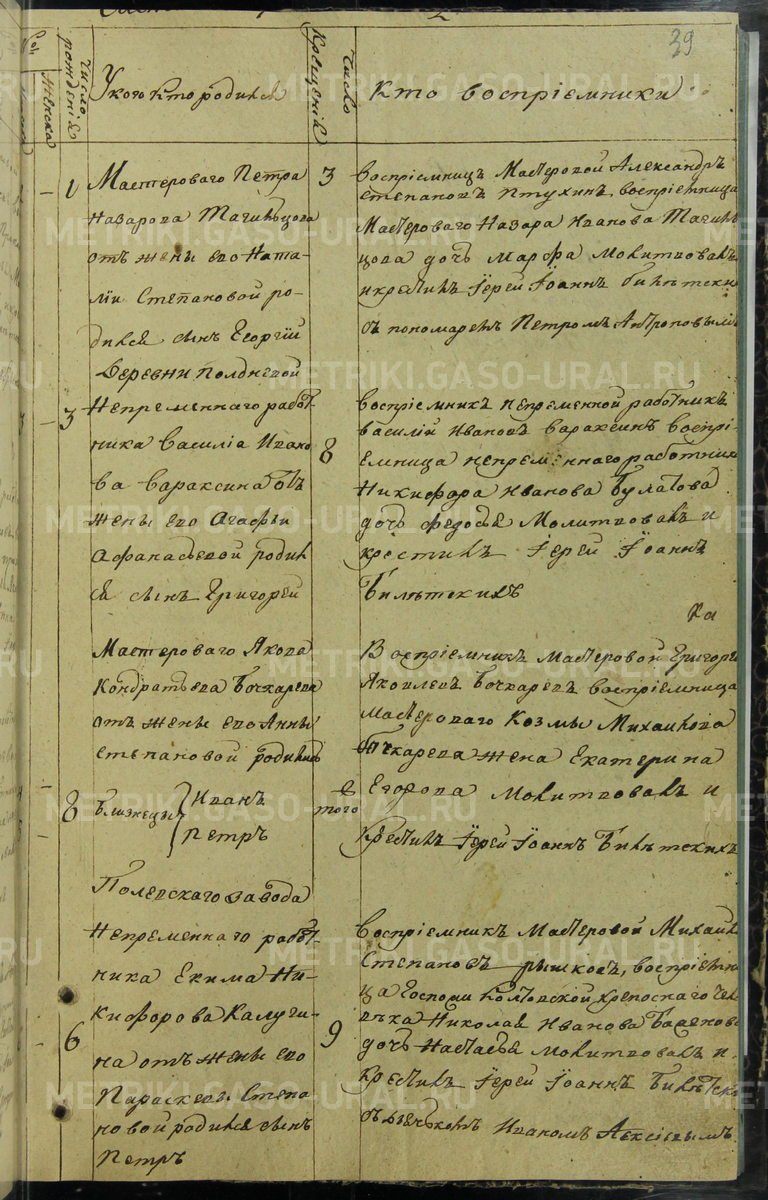 39
число рожденія
Женска
У кого кто родился
число крещенія
Кто воспріемники
1
Мастероваго Петра
Назарова Тагильцова
отъ жены его Ната-
ліи Степановой ро-
дился сынъ Георгій
3
воспріемникъ Мастеровой Александръ
Степановъ Птухинъ, воспріемница
Мастероваго Назара Иванова Тагиль
цова дочь Марфа Молитвовалъ
и крестилъ Іерей Іоаннъ
съ пономаремъ Петромъ Антроповымъ
Деревни Полдневой
3
Непременнаго работ-
ника Василіа Ивано
ва Вараксина отъ
жены его Агафьи
Афанасьевой родил
ся сынъ Григорей
8
воспріемникъ непременной работникъ
Василій Ивановъ Вараксинъ воспрі-
емница непременнаго работника
Никифора Иванова Булатова
дочь Федосья Молитвовалъ и
крестилъ Іерей Іоаннъ
Мастероваго Якова
Кондратьева Бочкарева
отъ жены его Анны
Степановой родились
8
близнецы Иванъ
Петръ
того
Воспріемникъ Мастеровой Григорей
Яковлевъ Бочкаревъ воспріемница
Мастероваго Козмы Михайлова
Бочкарева жена Екатерина
Егорова Молитвовалъ и
крестилъ Іерей Іоаннъ
Полевскаго завода
Непременнаго работ-
ника Екима Ни-
кифорова Калуги-
6
на отъ жены его
Параскевы Степа
новой родился сынъ
Петръ
9
воспріемникъ Мастеровой Михаилъ
Степановъ Рышковъ, воспріемни
ца Госпожи крепоснаго чело
века Николая Иванова
дочь Настасья Молитвовалъ и
крестилъ Іерей Іоаннъ
съ дьячкомъ Иваномъ Алексіевымъ
METRIKI.GASO-URAL.RU